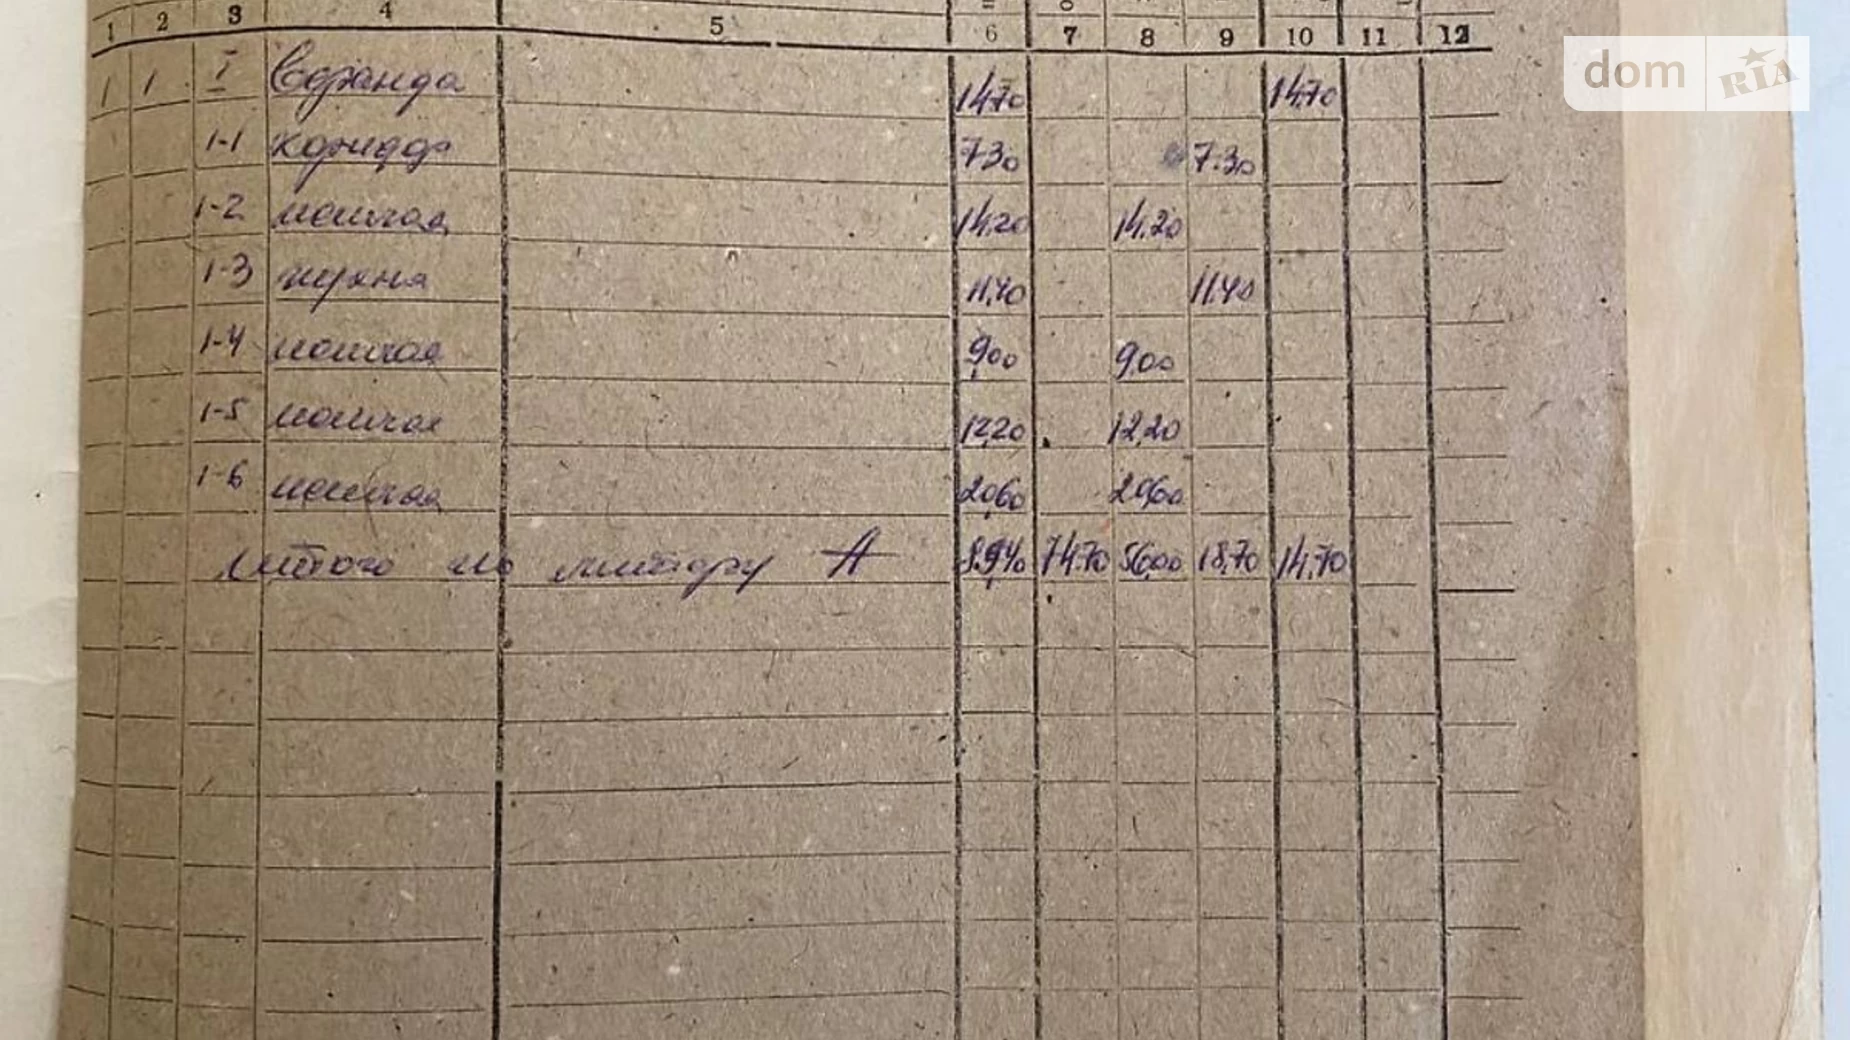 1 2 3 4 5 6 7 8 9 10 11 12
1 1 I Веранда 14,70 14,70
1-1 коридор 7,30 7.30
1-2 жилая 14,20 14,20
1-3 кухня 11,40 11,40
1-4 жилая 9,00 9,00
1-5 жилая 12,20 12,20
1-6 жилая 20,60 20,60
Итого по литеру А 89,40 74,70 56,00 18,70 14,70
dom RIA